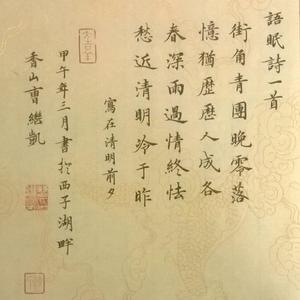 語眠詩一首
街角青團晚零落
憶猶歷歷人成各
春深雨過情終怯
愁近清明冷于昨
寫在清明前夕
甲午年三月書於西子湖畔
香山曹繼凱